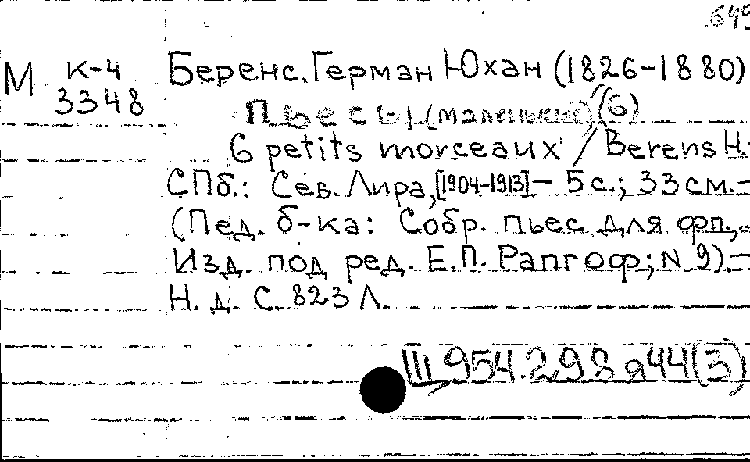 649
М К-4 Беренс, Герман Юхан (1826-1880)
3348
Пьесы (маленькие) (6)
6 petits morceaux / Berens H.
СПб.: Сев. Лира, [1904-1913] – 5 с.; 33 см. –
(Пед. б-ка: Собр. пьес для фп.
Изд. под ред. Е.П. Рапгоф; N 9) –
Н. д. С. 823 Л.
III 954.298 я44(3)